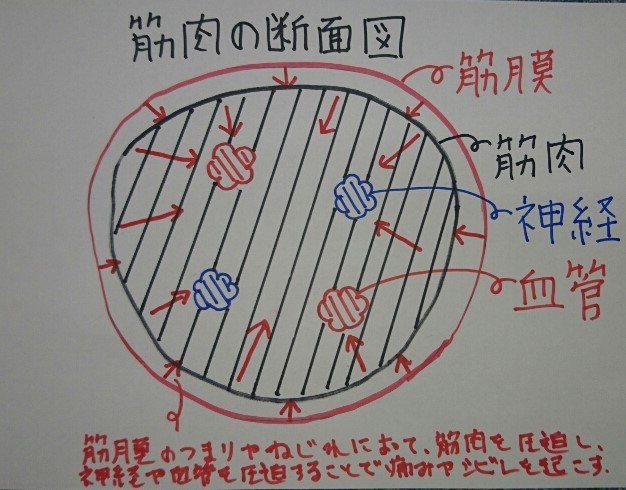 筋肉の断面図
筋膜
筋肉
神経
血管
筋膜のつまりやねじれによって、筋肉を圧迫し、
神経や血管を圧迫することで痛みやシビレを起こす.